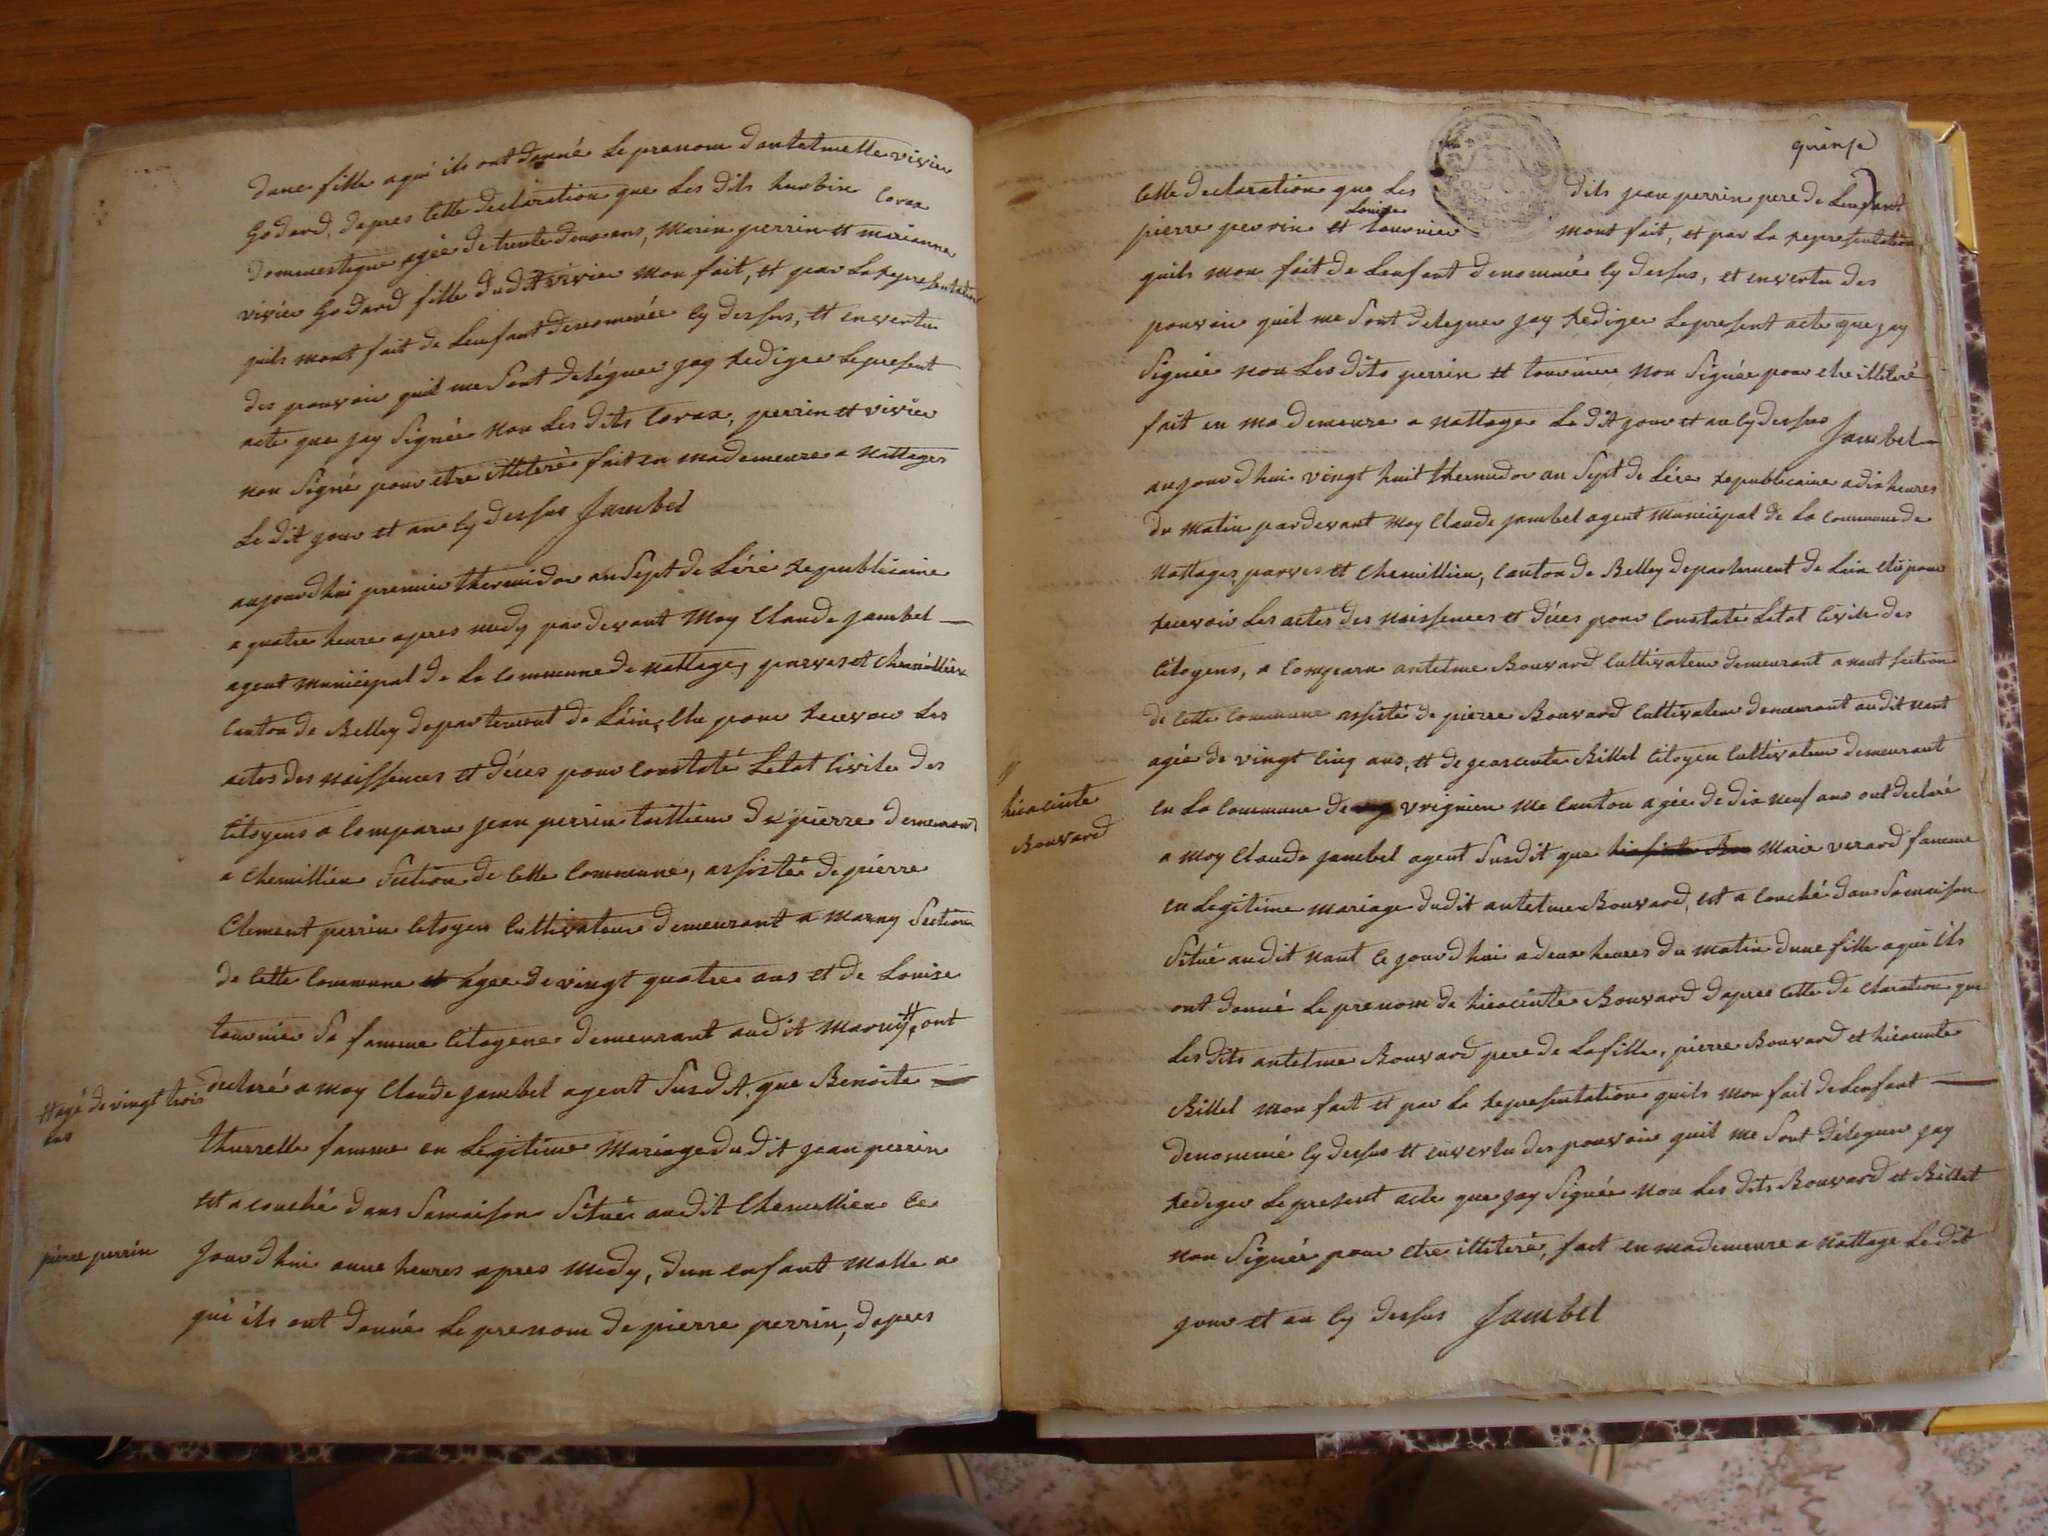 dune fille a qui ils ont donné le prenom dantelmette vivier
Godard, dapres cette declaration que les dits hurbin Corax
dommestique agée de trente deux ans, Marin perrin et marianne
vivier Godard fille du dit vivier mon fait, et par la representation
quils mont fait de lenfant denommée cy dessus, et envertu
des pouvoir quil me sont deléguer jay rediger le present
acte que jay signée non les dits Corax, perrin et vivier
non signé pour etre illiteré fait en ma demeure a nattages
le dit jour et an cy dessus Jambel
aujourdhui premier thermidor an sept de lére republicaine
a quatre heure apres midy pardevant moy Claude jambel
agent municipal de la commune de nattages, parves et chemillieu
canton de Belley departement de lain, elu pour recevoir les
actes des naissences et déces pour constaté letat civile des
citoyens a comparu jean perrin taillieur de pierre demeurant
a chemillieu section de cette commune, assisté de pierre
Clement perrin citoyen cultivateur demeurant a marny section
de cette commune et agée de vingt quatre ans et de Louise
tournier sa famme citoyene demeurant audit marny, # ont
# agé de vingt trois
ans
declaré a moy Claude jambel agent susdit, que Benoite
thurrelle famme en legitime mariage du dit jean perrin
est a couché dans sa maison située audit chemillieu ce
jourdhui onne heures apres midy, dun enfant malle a
pierre perrin
qui ils ont donné le prenom de pierre perrin, dapres
quinse
cette declaration que les dits jean perrin pere de lenfant
pierre perrin et Louise tournier mont fait, et par la representation
quils mon fait de lenfant denommé cy dessus, et envertu des
pouvoir quil me sont deleguer jay rediger le present acte que jay
signée non les dits perrin et tournier non signée pour etre illiteré
fait en ma demeure a nattage le dit jour et an cy dessus
Jambel
aujourdhui vingt huit thermidor an sept de lére republicaine a dix heures
du matin pardevant moy Claude jambel agent municipal de la commune de
nattages, parves et chemillieu, canton de Belley departement de lain elu pour
recevoir les actes des naissences et déces pour constaté letat civile des
citoyens, a comparu antelme Bouvard cultivateur demeurant a nant section
de cette commune assisté de pierre Bouvard cultivateur demeurant audit nant
agée de vingt cinq ans, et de gearcente Billet citoyen cultivateur demeurant
hiacinte
Bouvard
en la commune de vrignien me canton agée de dix neuf ans ont declaré
a moy Claude jambel agent susdit que hiasinte Bou Marie verard famme
en legitime mariage dudit antelme Bouvard, est a couché dans sa maison
situé audit nant ce jourdhui a deux heures du matin dune fille a qui ils
ont donné le prenom de hiacinte Bouvard dapres cette declaration que
les dits antelme Bouvard pere de la fille, pierre Bouvard et hiacinte
Billet mon fait et par la representation quils mon fait de lenfant
denommé cy dessus et envertu des pouvoir quil me sont déleguer jay
rediger le present acte que jay signée non les dits Bouvard et Billet
non signée pour etre illiteré, fait en ma demeure a nattage le dit
jour et an cy dessus Jambel